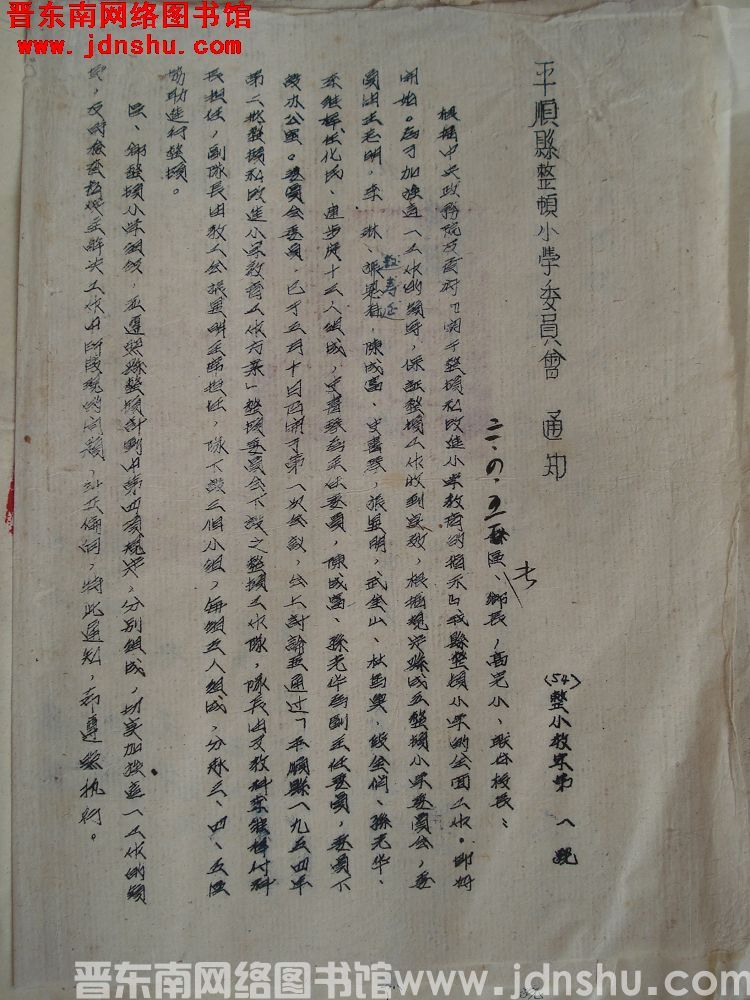 晋东南网络图书馆
www.jdnshu.com
平順縣整頓小學委員會 通知
(54)整小教字第 八 號
三.四.五縣區、鄉長,高完小、聯合校長:
根據中央政務院及省府『關于整頓和改造小學教育的指示』我縣整頓小學的全面工作。即將
開始。為了加強這一工作的領導,保証整頓工作收到實效,根據規定縣成立整頓小學委員會,委
員由王老明,李 琳、張思林、陳成富、史書琴,張显明,武金山、杜出與、段金阁、孫光华、
李維桦任化民、連步庚十三人組成,史書琴為主任委員,陳成富、孫光华為副主任委員,委員下
設办公室。委員会委員,已于五月十日召開了第一次会议,会上討論並通过「平順縣一九五四年
第二批整頓和改造小學教育工作方案」整頓委員会下設之整頓工作隊,隊長由文教科李維桦付科
長担任,副隊長由教工会張显明主席担任,隊下設三個小組,每組五人組成,分赴三、四、五區
協助進行整頓。
區、鄉整頓小學組织,应遵照縣整頓計劃中第四項規定,分別組成,切实加強這一工作的領
導,及時檢查和主解决工作中所發现的问題,糾正偏向,特此通知,希遵照执行。
晋东南网络图书馆 www.jdnshu.com